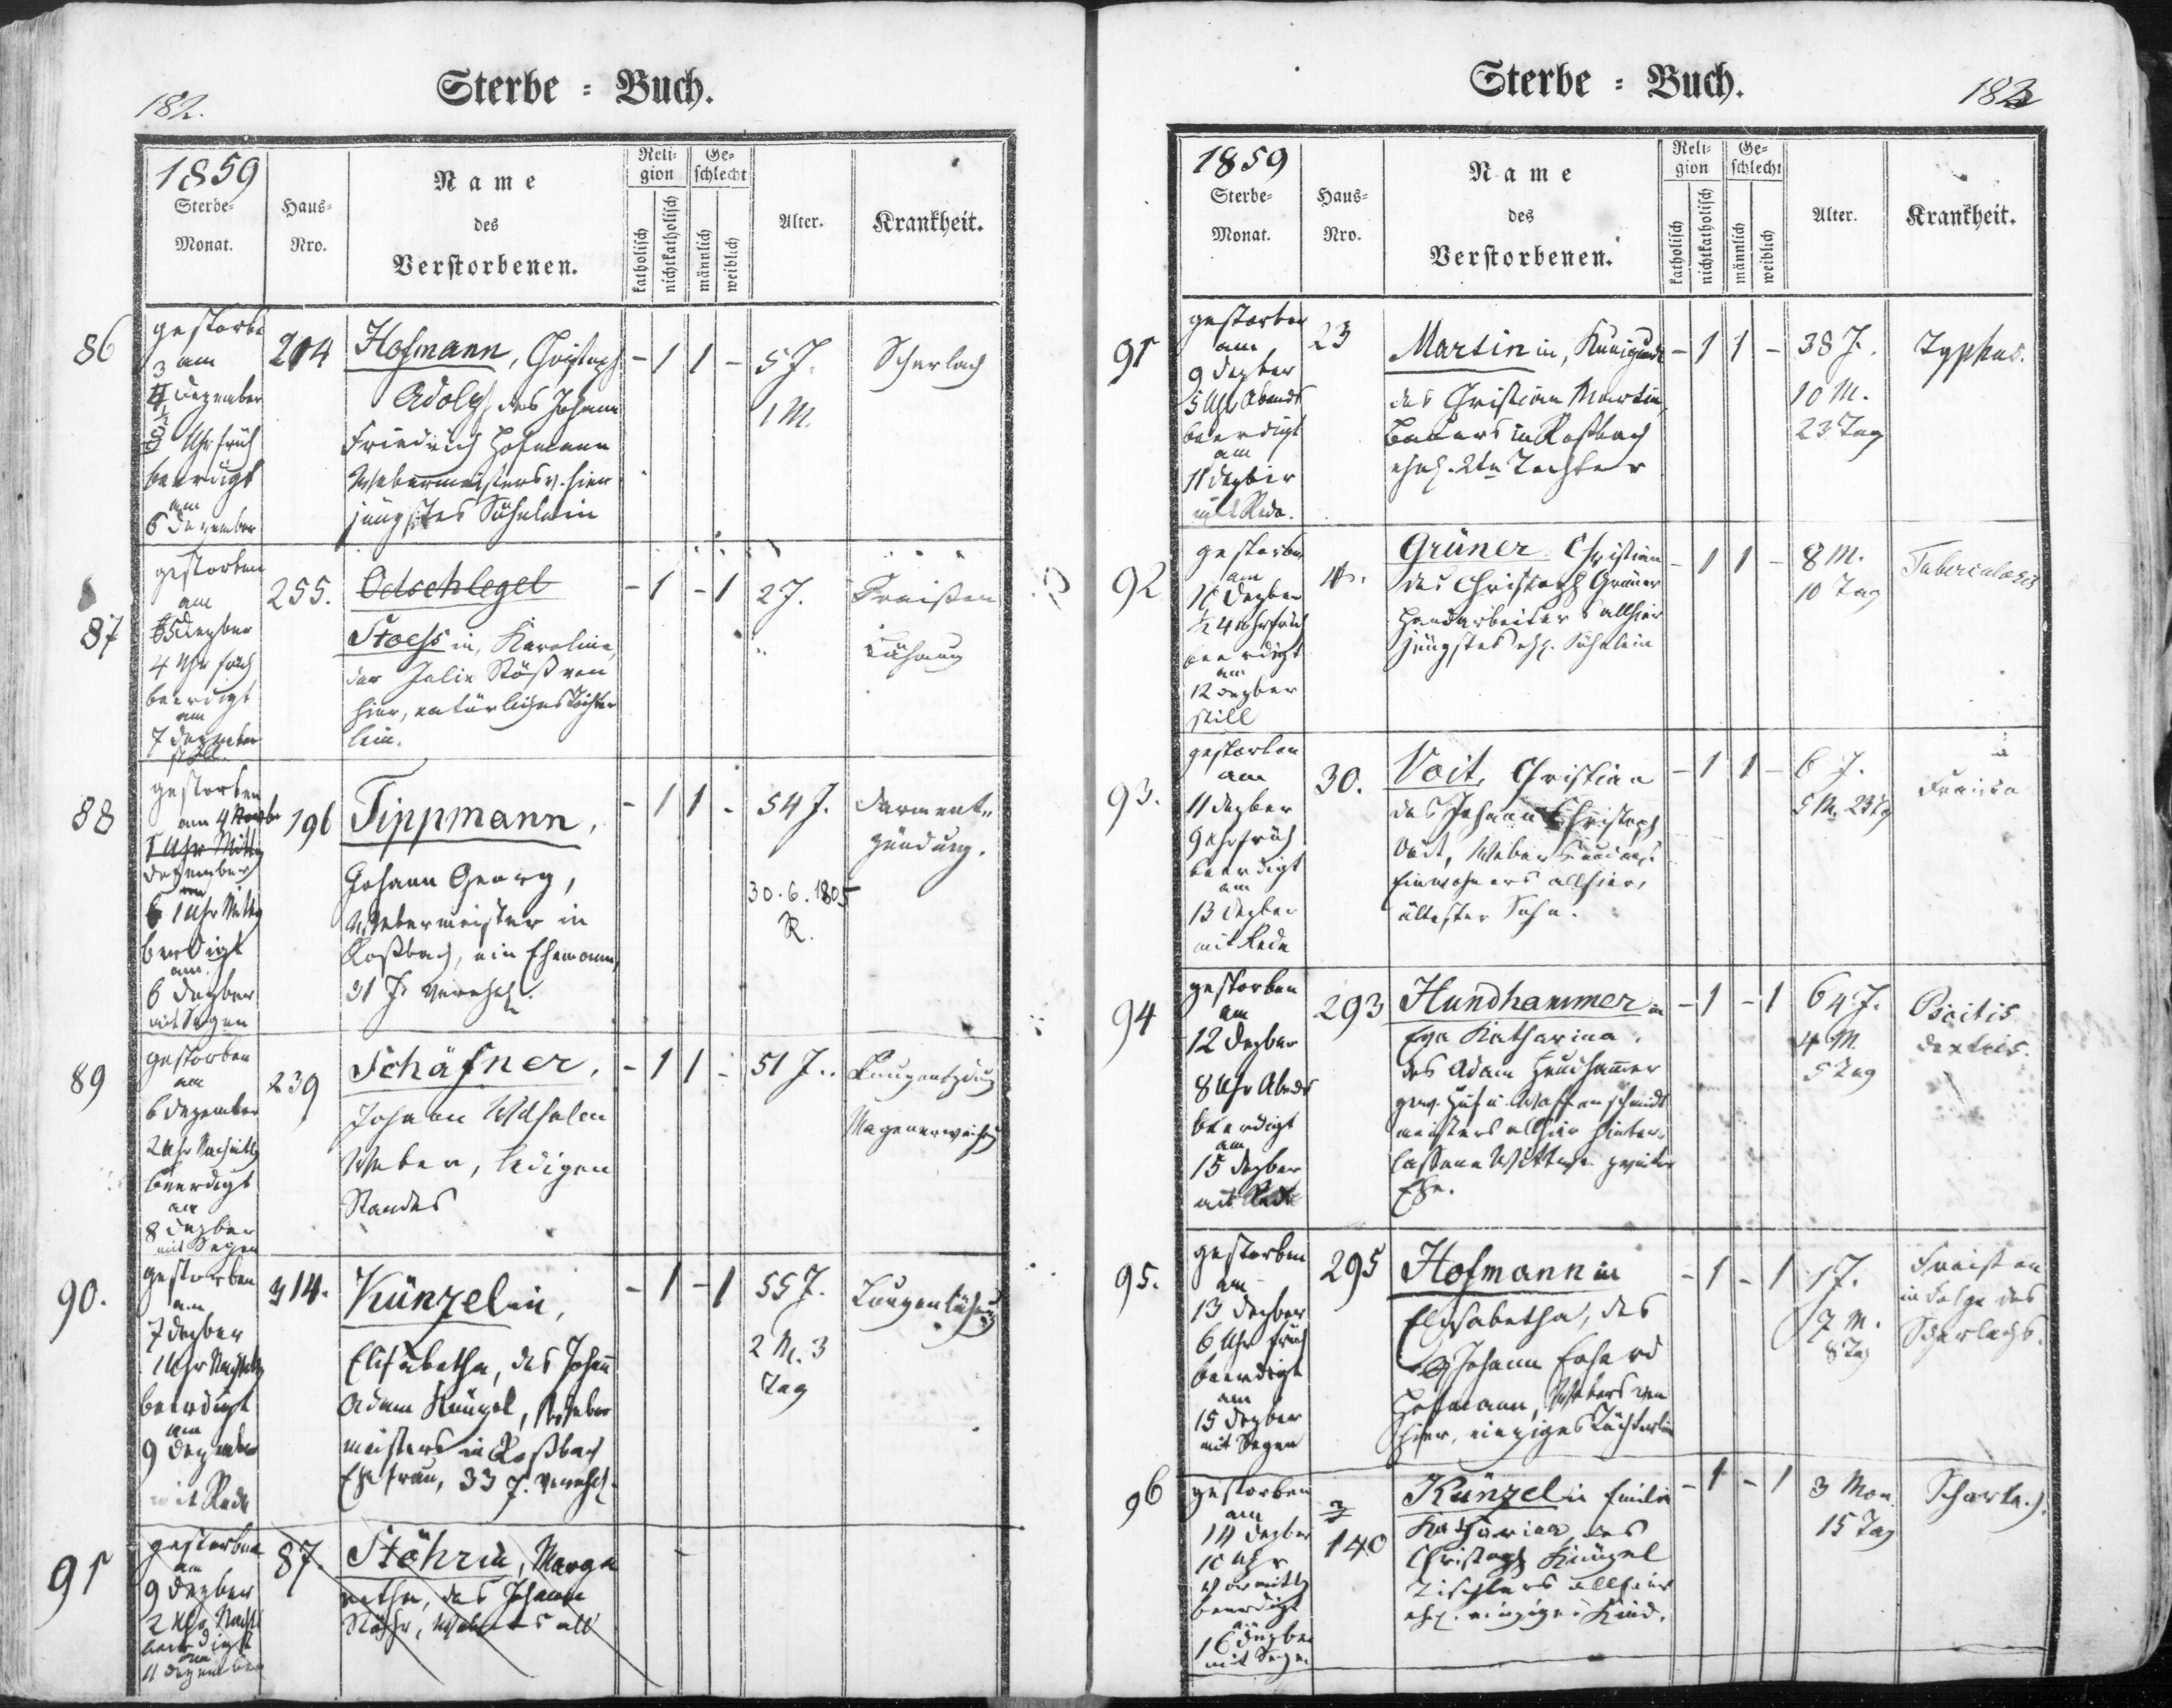 182.
Sterbe = Buch.
1859
Sterbe-
Monat.
Haus-
Nro.
Name
des
Verstorbenen.
Reli-
gion
katholisch
nichtkatholisch
Ge-
schlecht
männlich
weiblich
Alter.
Krankheit.
86
gestorbe
am
3
Dezember
Uhr früh
beerdigt
am
6 Dezember
204
Hofmann, Christoph
Adolf, des Johann
Friedrich Hofmann
Webermeisters v. hier
jüngstes Söhnlein
- 1 1 -
5 J.
1 M.
Scharlach
87
gestorben
am
5 Dezber
4 Uhr früh
beerdigt
am
7 Dezember
still.
255.
Oelschlegel
Stoess in, Karolina,
der Julie Stöß von
hier, natürliches Töchter
lein.
- 1 - 1
2 J.
Fraißen
Lähmung
88
gestorben
am 4
1 Uhr Mittg
Dezember
1 Uhr Mittg
beerdigt
am
6 Dezber
mit Segen
196
Tippmann,
Johann Georg,
Webermeister in
Roßbach, ein Ehemann,
31 J. verehel.
- 1 1 -
54 J.
30.6.1805
R.
Darment-
zündung.
89
gestorben
am
6 Dezember
2 Uhr Nachmittg
beerdigt
am
8 Dezber
mit Segen
239
Schäfner,
Johann Wilhelm
Weber, ledigen
Standes
- 1 1 -
51 J.
Magenerweichg
90.
gestorben
am
7 Dezber
1 Uhr Nachmittg
beerdigt
am
9 Dezember
mit Rede
314.
Künzel in,
Elisabetha, des Johann
Adam Künzel, Weber
meisters in Roßbach
Ehefrau, 33 J. verehel.
- 1 - 1
55 J.
2 M. 3
Tag
Lungenlähmg
91
gestorben
am
9 Dezber
2 Uhr Nachts
beerdigt
am
11 Dezember
87.
Stöhr in, Marga
retha, des Johann
Stöhr, Webers all
183
Sterbe = Buch.
1859
Sterbe-
Monat.
Haus-
Nro.
Name
des
Verstorbenen.
Reli-
gion
katholisch
nichtkatholisch
Ge-
schlecht
männlich
weiblich
Alter.
Krankheit.
91
gestorben
am
9 Dezber
5 Uhr Abends
beerdigt
am
11 Dezber
mit Rede.
23
Martin in, Kunigunde
des Christian Martin,
Bauers in Roßbach
ehel. 2te Tochter
- 1 1 -
38 J.
10 M.
23 Tag
Typhus.
92
gestorben
am
Dezber
1/2 4 Uhr früh
beerdigt
am
12 Dezber
still
Grüner Christian
des Christoph Grüner
Handarbeiters allhier
jüngstes ehel. Söhnlein
- 1 1 -
8 M.
10 Tag
Tuberculosis
93.
gestorben
am
11 Dezber
9 Uhr früh
beerdigt
am
13 Dezber
mit Rede
30.
Voit, Christian
des Johann Christoph
Voit, Weber
Einwohners allhier,
ältester Sohn.
- 1 1 -
6 J.
5 M. 23 Tg
94
gestorben
am
12 Dezber
8 Uhr Abends
beerdigt
am
15 Dezber
mit Rede
293
Hundhammer in
Eva Katharina,
des Adam Hundhammer
gew. Huf u. Waffenschmidt
meisters allhier hinter-
lassene Wittwe zweiter
Ehe.
- 1 - 1
64 J.
4 M.
5 Tag
Psoitis
dextris.
95.
gestorben
am
13 Dezber
6 Uhr früh
beerdigt
am
15 Dezber
mit Segen
295
Hofmann in
Elisabetha, des
Johann Erhard
Hofmann, Webers von
hier, einziges Töchterlein
- 1 - 1
1 J.
7 M.
8 Tag
Fraisen
in Folge des
Scharlachs.
96
gestorben
am
14 Dezber
10 Uhr
Vormittg
beerdigt
am
16 Dezber
mit Segen
140
Künzel in Emilie
Katharina, des
Christoph Künzel
Tischlers allhier
ehel. einziges Kind.
- 1 - 1
3 Mon.
15 Tag
Scharlach.